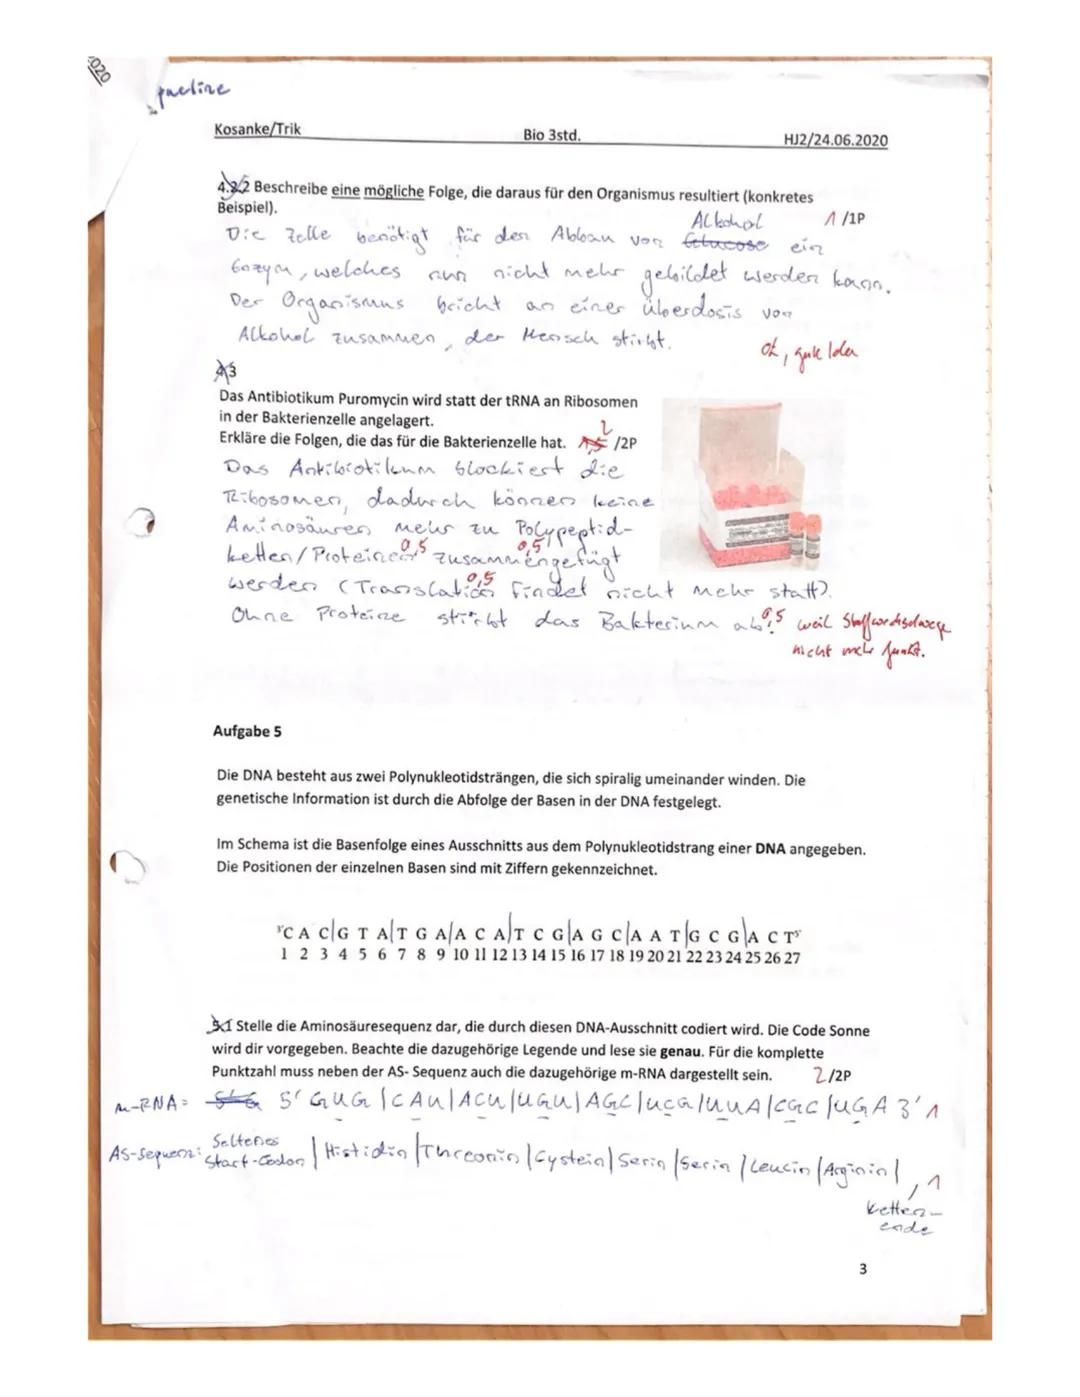 2020
Kosanke/Trik Bio 3std. HJ2/24.06.2020
4.2.2 Beschreibe eine mögliche Folge, die daraus für den Organismus resultiert (konkretes
Beispiel). 1 /1P
Alkohol
Die Zelle benötigt für den Abbau von Glucose ein
Enzym, welches nun nicht mehr gebildet werden kann.
Der Organismus bricht an einer überdosis von
Alkohol zusammen, der Mensch stirbt.
ok, gute Idee
4.3
Das Antibiotikum Puromycin wird statt der tRNA an Ribosomen
in der Bakterienzelle angelagert.
Erkläre die Folgen, die das für die Bakterienzelle hat. 1,5 2 /2P
Das Antibiotikum blockiert die
Ribosomen, dadurch können keine
Aminosäuren mehr zu Polypeptid-
ketten/Proteinen 0,5 zusammengefügt 0,5
werden (Translation 0,5 findet nicht mehr statt).
Ohne Proteine stirbt das Bakterium ab. 0,5 weil Stoffwechselwege
nicht mehr funkt.
Aufgabe 5
Die DNA besteht aus zwei Polynukleotidsträngen, die sich spiralig umeinander winden. Die
genetische Information ist durch die Abfolge der Basen in der DNA festgelegt.
Im Schema ist die Basenfolge eines Ausschnitts aus dem Polynukleotidstrang einer DNA angegeben.
Die Positionen der einzelnen Basen sind mit Ziffern gekennzeichnet.
3'C A C|G T A|T G A|A C A|T C G|A G C|A A T|G C G|A C T5'
1 2 3 4 5 6 7 8 9 10 11 12 13 14 15 16 17 18 19 20 21 22 23 24 25 26 27
5.1 Stelle die Aminosäuresequenz dar, die durch diesen DNA-Ausschnitt codiert wird. Die Code Sonne
wird dir vorgegeben. Beachte die dazugehörige Legende und lese sie genau. Für die komplette
Punktzahl muss neben der AS- Sequenz auch die dazugehörige m-RNA dargestellt sein. 2/2P
m-RNA= 5' GUG|CAU|ACU|UGU|AGC|UCG|UUA|CGC|UGA 3' 1
AS-Sequenz: Seltenes Start-Codon | Histidin | Threonin | Cystein | Serin | Serin | Leucin | Arginin | , 1
Ketten-
ende
3